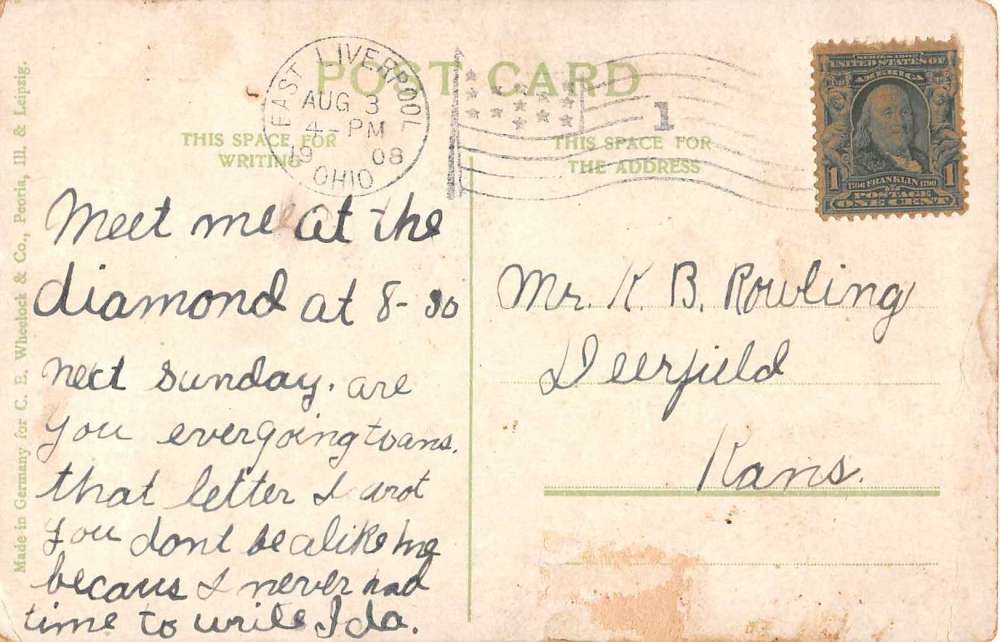 POST CARD
EAST LIVERPOOL
AUG 3
4 - PM
19 08
OHIO
1
SERIES 1902
UNITED STATES OF
AMERICA
1 1
1706 FRANKLIN 1790
POSTAGE
ONE CENT
THIS SPACE FOR
WRITING
THIS SPACE FOR
THE ADDRESS
Made in Germany for C. E. Wheelock & Co., Peoria, Ill. & Leipzig.
Meet me at the
diamond at 8-30
next sunday. are
you ever going to ans.
that letter I arot
you dont be alike me
becaus I never had
time to write Ida.
Mr. K B. Rowling
Deerfield
Kans.